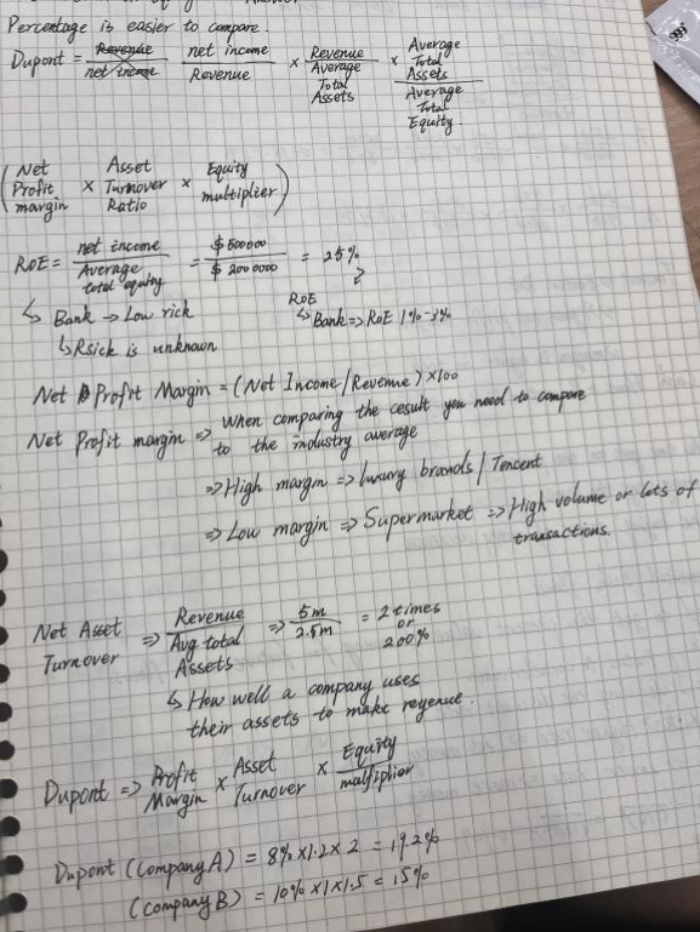 Answer
Percentage is easier to compare.
Dupont = Revenue / net income net income / Revenue × Revenue / Average Total Assets × Average Total Assets / Average Total Equity.
(Net Profit margin × Asset Turnover Ratio × Equity multiplier)
RoE = net income / Average total equity = $500000 / $2000000 = 25%
?
↳ Bank → Low rick
RoE
↳ Bank => RoE 1%-3%
↳ Rsick is unknown
Net Profit Margin = (Net Income/Revenue) ×100
Net Profit margin => When comparing the cesult you need to compare
to the industry average
=> High margin => luxury brands / Tencent
=> Low margin => Supermarket => High volume or lots of
transactions.
Net Asset Turnover => Revenue / Avg total Assets => 5m / 2.5m = 2 times or 200%
↳ How well a company uses
their assets to make revenue.
Dupont => Profit Margin × Asset Turnover × Equity multiplior
Dupont (Company A) = 8% × 1.2 × 2 = 19.2%
(Company B) = 10% × 1 × 1.5 = 15%
999